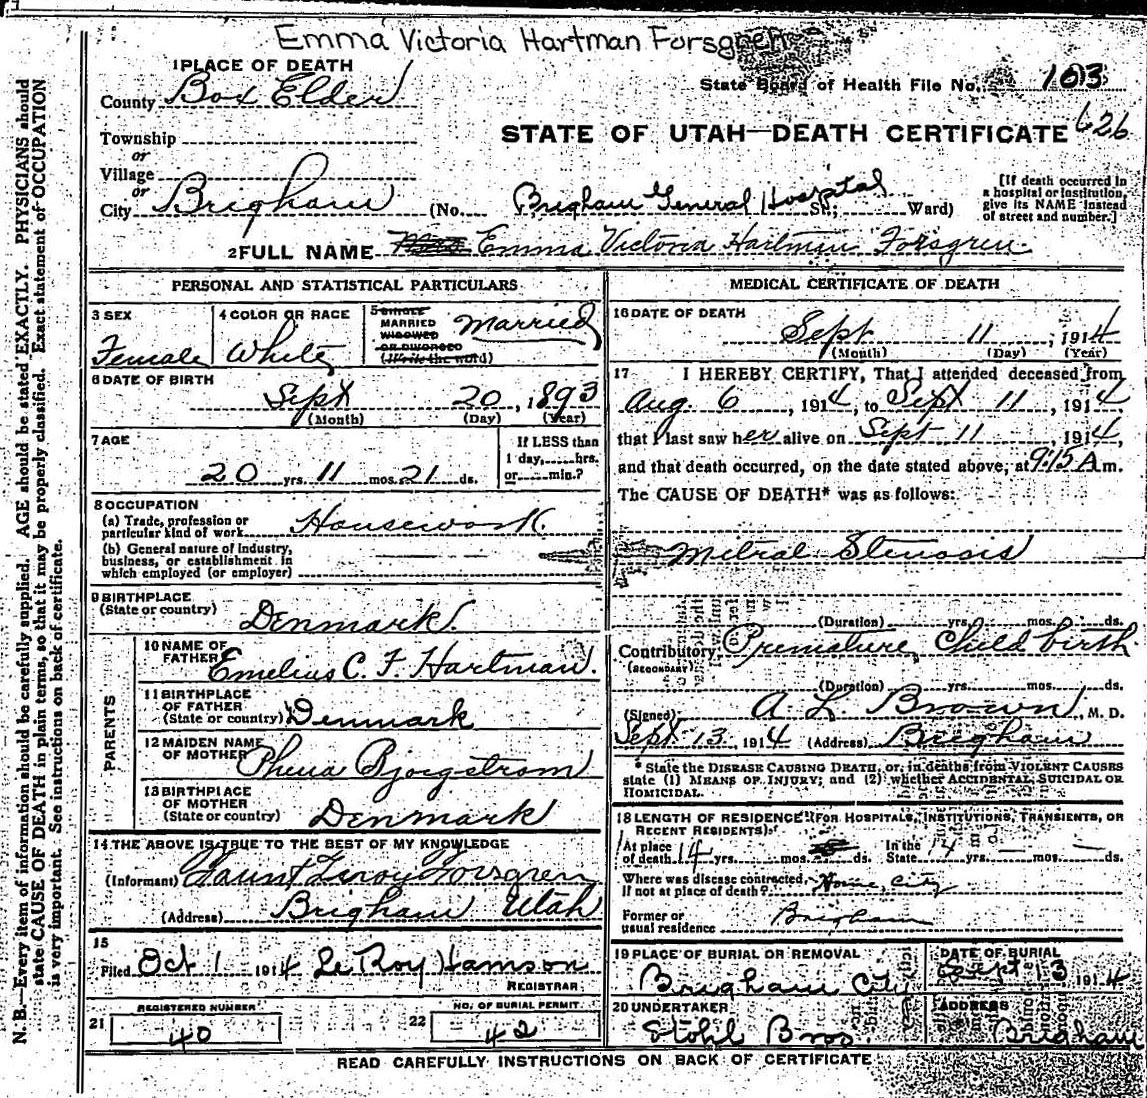 Emma Victoria Hartman Forsgren
1 PLACE OF DEATH
County Box Elder
State Board of Health File No. 103
Township
or
STATE OF UTAH—DEATH CERTIFICATE 626
Village
or
City Brigham (No. Brigham General Hospital St.; Ward)
[If death occurred in
a hospital or institution,
give its NAME instead
of street and number.]
2 FULL NAME Emma Victoria Hartman Forsgren
PERSONAL AND STATISTICAL PARTICULARS
3 SEX
Female
4 COLOR OR RACE
White
5 SINGLE
MARRIED
WIDOWED
OR DIVORCED
(Write the word)
Married
6 DATE OF BIRTH
Sept 20, 1893
(Month) (Day) (Year)
7 AGE
20 yrs. 11 mos. 21 ds.
If LESS than
1 day, hrs.
or min.?
8 OCCUPATION
(a) Trade, profession or
particular kind of work Housework
(b) General nature of industry,
business, or establishment in
which employed (or employer)
9 BIRTHPLACE
(State or country) Denmark
PARENTS
10 NAME OF
FATHER Emelius C. F. Hartman.
11 BIRTHPLACE
OF FATHER
(State or country) Denmark
12 MAIDEN NAME
OF MOTHER
13 BIRTHPLACE
OF MOTHER
(State or country) Denmark
14 THE ABOVE IS TRUE TO THE BEST OF MY KNOWLEDGE
(Informant) Leroy Forsgren
(Address) Brigham Utah
15
Filed Oct 1 1914 Le Roy Hamson
REGISTRAR
REGISTERED NUMBER
21 40
NO. OF BURIAL PERMIT
22 42
MEDICAL CERTIFICATE OF DEATH
16 DATE OF DEATH
Sept 11, 1914
(Month) (Day) (Year)
17 I HEREBY CERTIFY, That I attended deceased from
Aug. 6, 1914, to Sept 11, 1914,
that I last saw her alive on Sept 11, 1914,
and that death occurred, on the date stated above, at 9:15 A m.
The CAUSE OF DEATH* was as follows:
Mitral Stenosis
(Duration) yrs. mos. ds.
Contributory Premature Child birth
(SECONDARY)
(Duration) yrs. mos. ds.
(Signed) A. L. Brown, M. D.
Sept 13, 1914 (Address) Brigham
* State the DISEASE CAUSING DEATH, or, in deaths from VIOLENT CAUSES
state (1) MEANS OF INJURY; and (2) whether ACCIDENTAL, SUICIDAL OR
HOMICIDAL.
18 LENGTH OF RESIDENCE (FOR HOSPITALS, INSTITUTIONS, TRANSIENTS, OR
RECENT RESIDENTS)
At place
of death 14 yrs. mos. ds.
In the
State 14 yrs. mos. ds.
Where was disease contracted,
If not at place of death? Home, City
Former or
usual residence Brigham
19 PLACE OF BURIAL OR REMOVAL
Brigham City
DATE OF BURIAL
Sept 13 1914
20 UNDERTAKER
Stohl Bros.
ADDRESS
Brigham
READ CAREFULLY INSTRUCTIONS ON BACK OF CERTIFICATE
N. B.—Every item of information should be carefully supplied. AGE should be stated EXACTLY. PHYSICIANS should
state CAUSE OF DEATH in plain terms, so that it may be properly classified. Exact statement of OCCUPATION
is very important. See instructions on back of certificate.